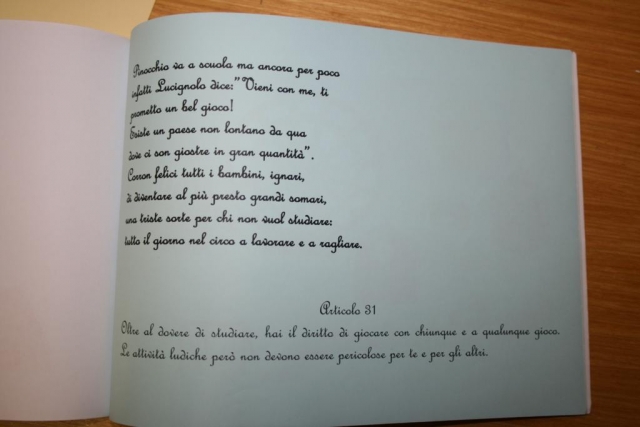 Pinocchio va a scuola ma ancora per poco
infatti Lucignolo dice:"Vieni con me, ti
prometto un bel gioco!
Esiste un paese non lontano da qua
dove ci son giostre in gran quantità".
Corron felici tutti i bambini, ignari,
di diventare al più presto grandi somari,
una triste sorte per chi non vuol studiare:
tutto il giorno nel circo a lavorare e a ragliare.
Articolo 31
Oltre al dovere di studiare, hai il diritto di giocare con chiunque e a qualunque gioco.
Le attività ludiche però non devono essere pericolose per te e per gli altri.